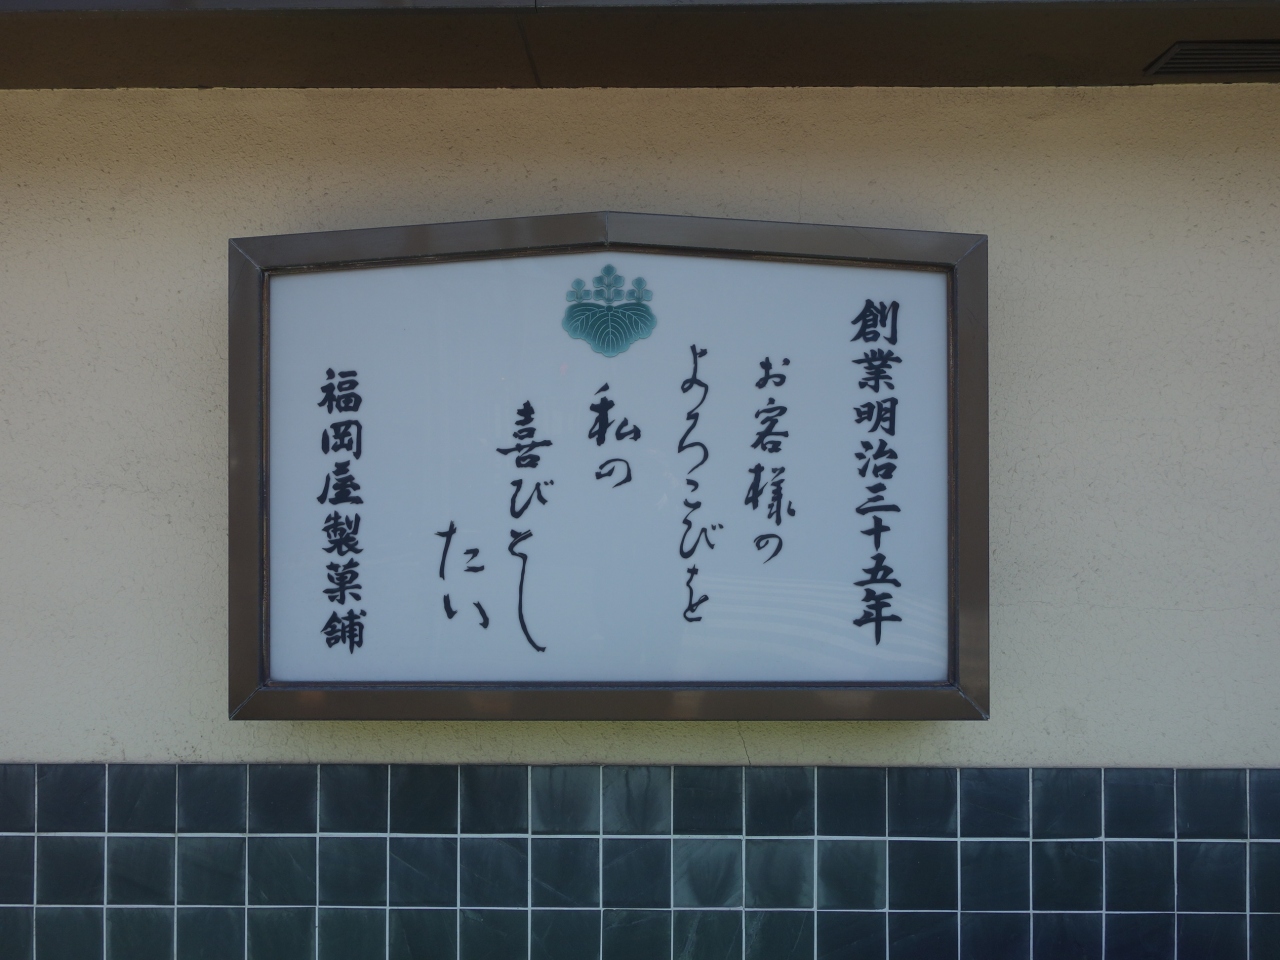 創業明治三十五年
お客様の
よろこびを
私の
喜びとし
たい
福岡屋製菓舗